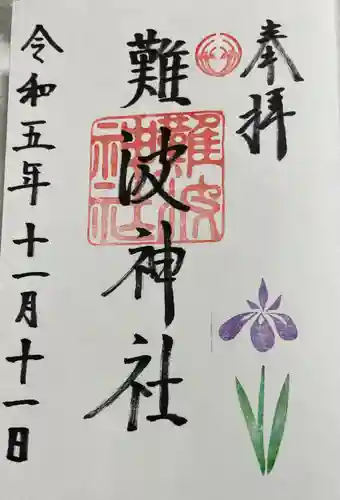 奉拝
難波神社
難波神社
令和五年十一月十一日